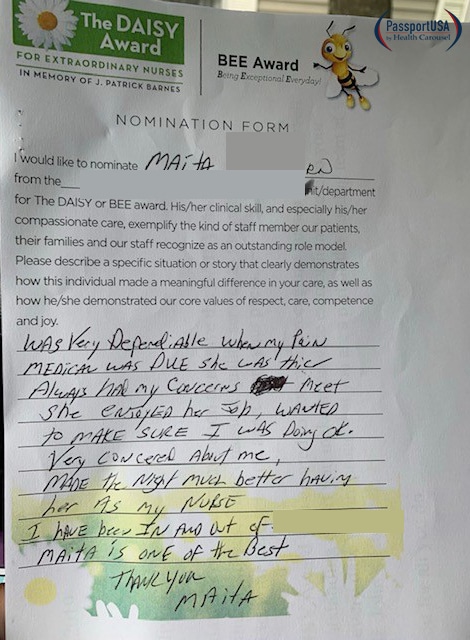 The DAISY
Award
FOR EXTRAORDINARY NURSES
IN MEMORY OF J. PATRICK BARNES
BEE Award
Being Exceptional Everyday!
PassportUSA
by Health Carousel
NOMINATION FORM
I would like to nominate MAitA RN
from the nit/department
for The DAISY or BEE award. His/her clinical skill, and especially his/her
compassionate care, exemplify the kind of staff member our patients,
their families and our staff recognize as an outstanding role model.
Please describe a specific situation or story that clearly demonstrates
how this individual made a meaningful difference in your care, as well as
how he/she demonstrated our core values of respect, care, competence
and joy.
WAS Very Dependiable when my PAiN
MEDICAL WAS DUE She WAS thier
Always had my Concerns Meet
She enjoyed her Job, WANTED
to MAKE SURE I WAS Doing ok.
Very Concered About me,
MADE the Night Much better having
her As my NURSE
I HAVE been IN AND out of
MAitA is ONE of the Best
THANK you
MAitA